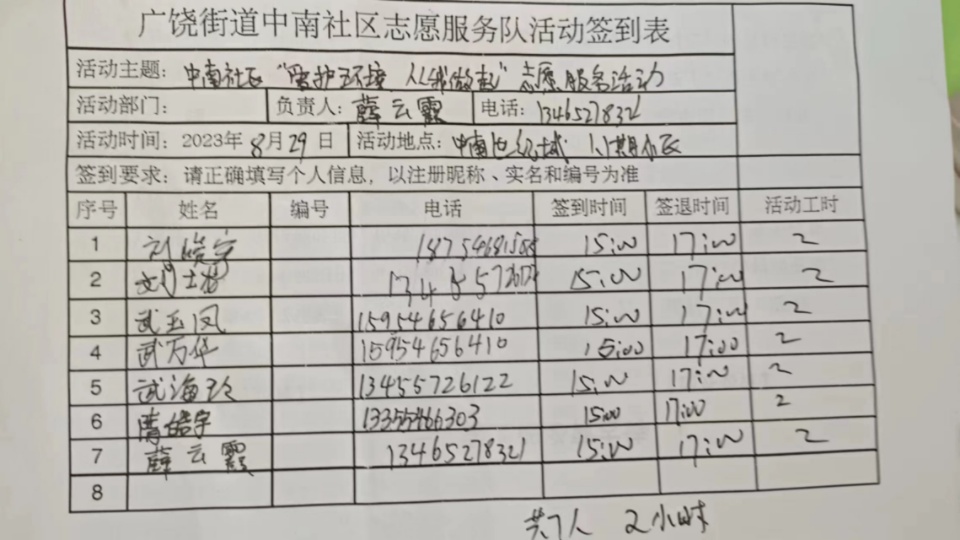 广饶街道中南社区志愿服务队活动签到表
活动主题：中南社区“爱护环境 从我做起”志愿服务活动
活动部门： 负责人：薛云霞 电话：13465278321
活动时间：2023年8月29日 活动地点：中南世纪城
签到要求：请正确填写个人信息，以注册昵称、实名和编号为准
序号 姓名 编号 电话 签到时间 签退时间 活动工时
1 15:00 17:00 2
2 15:00 17:00 2
3 武玉凤 15954656410 15:00 17:00 2
4 武万华 15954656410 15:00 17:00 2
5 武海玲 13455726122 15:00 17:00 2
6 13355466303 1500 17:00 2
7 薛云霞 13465278321 15:00 17:00 2
8
共7人 2小时